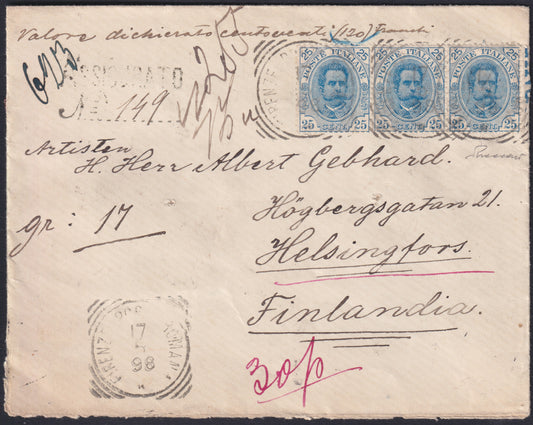 Valore dichiarato centoventi (120) franchi
ASSICURATO
No 149
25 POSTE ITALIANE 25
25 POSTE ITALIANE 25
25 POSTE ITALIANE 25
25 CENT. 25
25 CENT. 25
25 CENT. 25
Artisten
H. Herr Albert Gebhard.
Högbergsgatan 21.
gr: 17
Helsingfors.
Finlandia.
17
98
30p